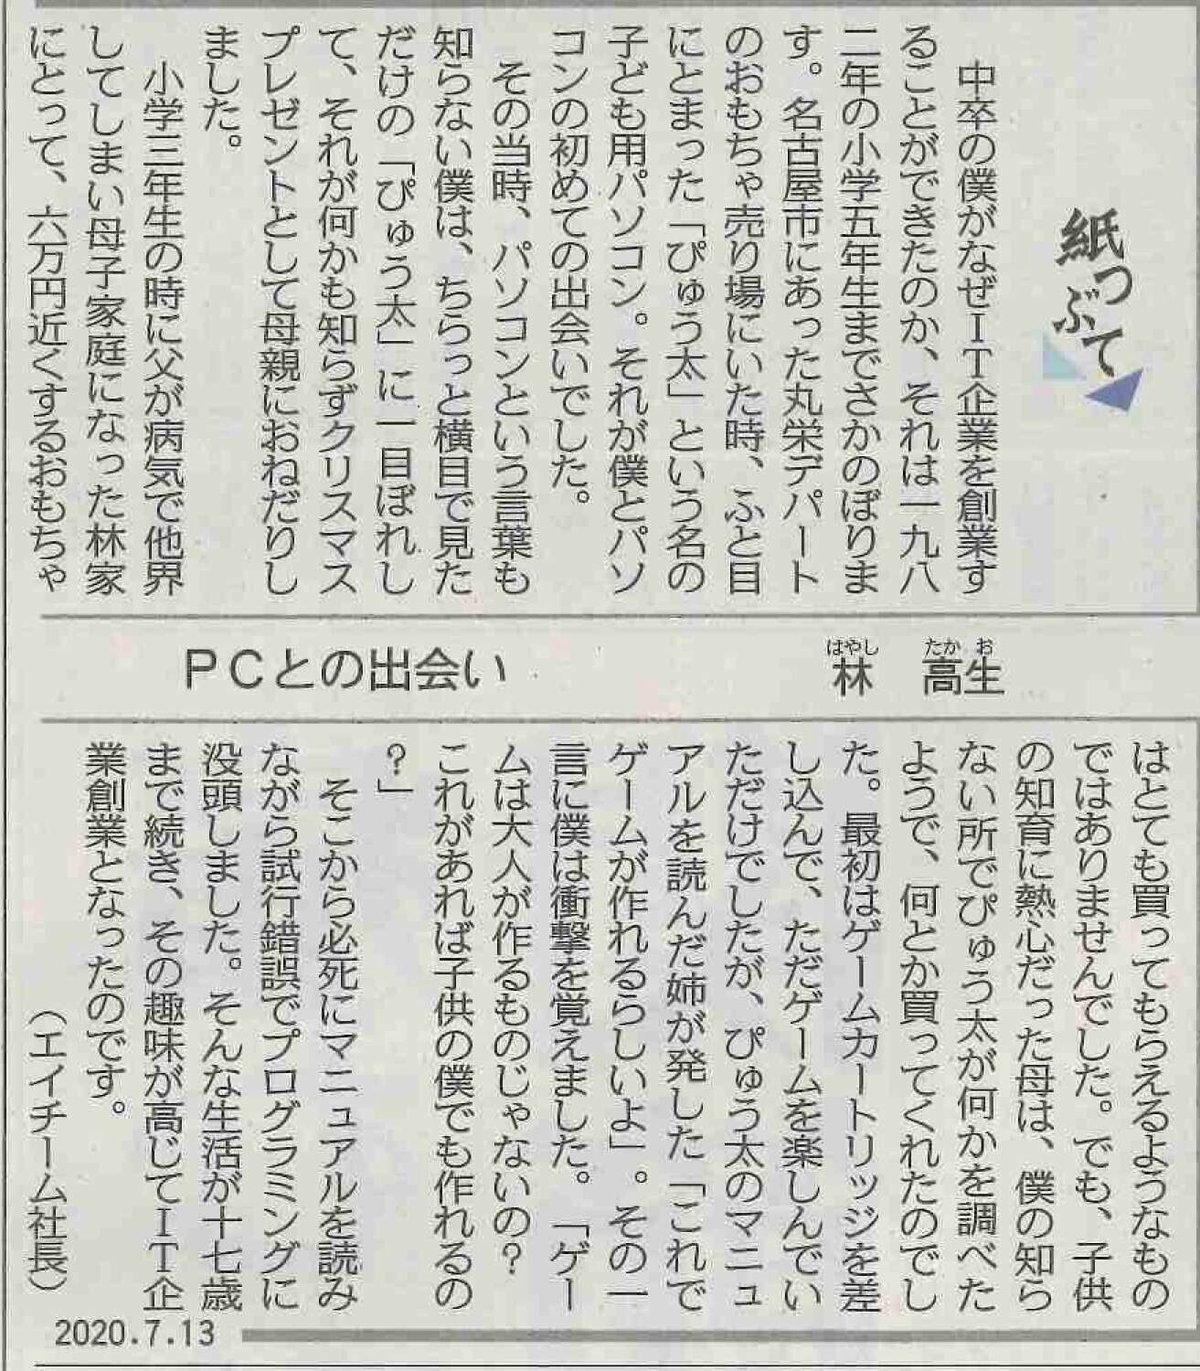 紙つぶて
中卒の僕がなぜIT企業を創業す
ることができたのか、それは一九八
二年の小学五年生までさかのぼりま
す。名古屋市にあった丸栄デパート
のおもちゃ売り場にいた時、ふと目
にとまった「ぴゅう太」という名の
子ども用パソコン。それが僕とパソ
コンの初めての出会いでした。
その当時、パソコンという言葉も
知らない僕は、ちらっと横目で見た
だけの「ぴゅう太」に一目ぼれし
て、それが何かも知らずクリスマス
プレゼントとして母親におねだりし
ました。
小学三年生の時に父が病気で他界
してしまい母子家庭になった林家
にとって、六万円近くするおもちゃ
PCとの出会い
林 高生
はやし たか お
はとても買ってもらえるようなもの
ではありませんでした。でも、子供
の知育に熱心だった母は、僕の知ら
ない所でぴゅう太が何かを調べた
ようで、何とか買ってくれたのでし
た。最初はゲームカートリッジを差
し込んで、ただゲームを楽しんでい
ただけでしたが、ぴゅう太のマニュ
アルを読んだ姉が発した「これで
ゲームが作れるらしいよ」。その一
言に僕は衝撃を覚えました。「ゲー
ムは大人が作るものじゃないの?
これがあれば子供の僕でも作れるの
?」
そこから必死にマニュアルを読み
ながら試行錯誤でプログラミングに
没頭しました。そんな生活が十七歳
まで続き、その趣味が高じてIT企
業創業となったのです。
(エイチーム社長)
2020.7.13